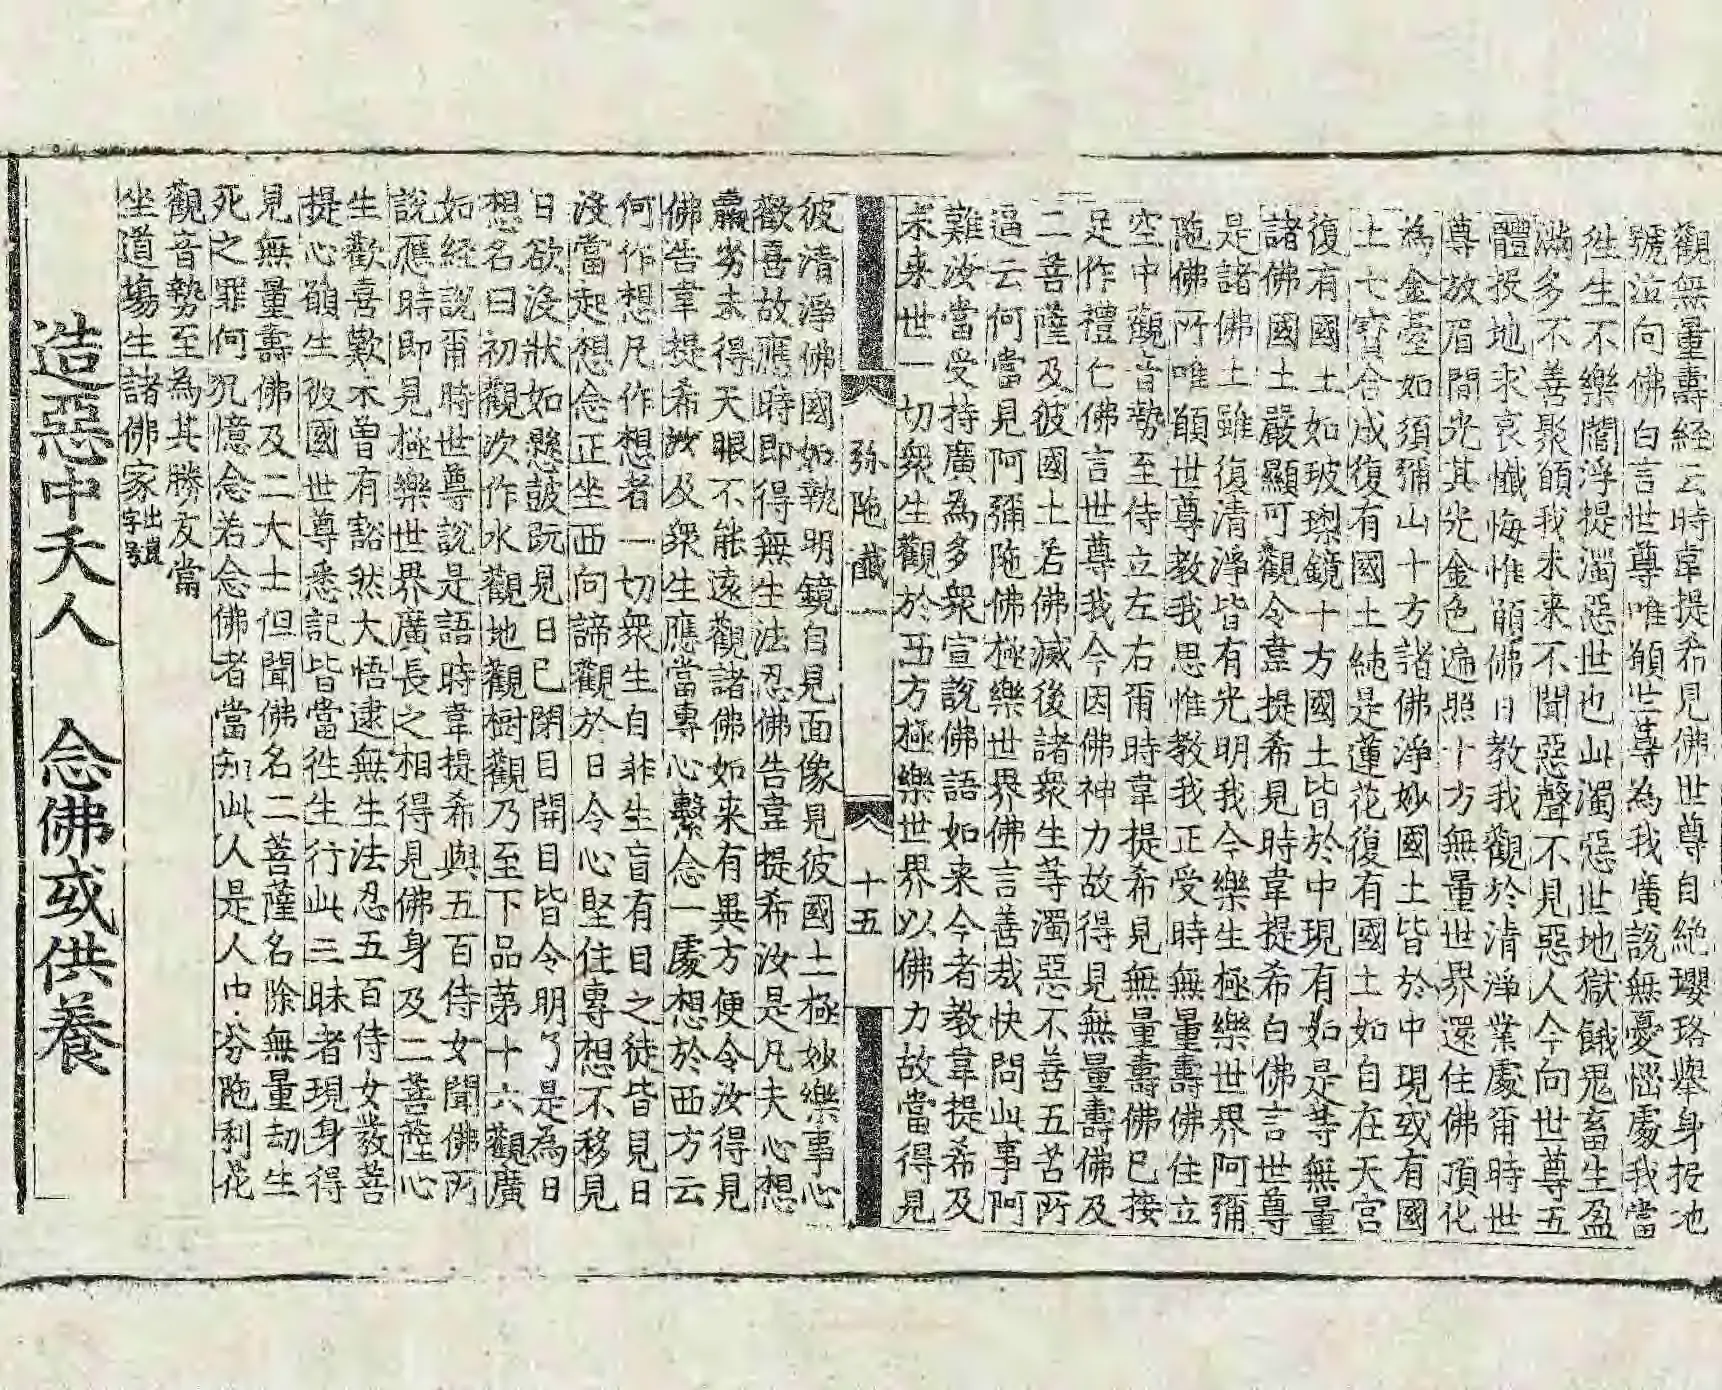 觀無量壽經云時韋提希見佛世尊自絶瓔珞擧身投地
號泣向佛白言世尊唯願世尊為我廣說無憂惱處我當
徃生不樂閻浮提濁惡世也此濁惡世地獄餓鬼畜生盈
滿多不善聚願我未来不聞惡聲不見惡人今向世尊五
體投地求哀懺悔惟願佛日教我觀於清淨業處甫時世
尊放眉間光其光金色遍照十方無量世界還住佛頂化
為金臺如須彌山十方諸佛淨妙國土皆於中現或有國
土七寶合成復有國土純是蓮花復有國土如自在天宮
復有國土如玻瓈鏡十方國土皆於中現有如是等無量
諸佛國土嚴顯可觀令韋提希見時韋提希白佛言世尊
是諸佛土雖復清淨皆有光明我今樂生極樂世界阿彌
陁佛所唯願世尊教我思惟教我正受時無量壽佛住立
空中觀音勢至侍立左右爾時韋提希見無量壽佛已接
足作禮仁佛言世尊我今因佛神力故得見無量壽佛及
二菩薩及彼國土若佛滅後諸衆生等濁惡不善五苦所
逼云何當見阿彌陁佛極樂世界佛言善哉快問此事阿
難汝當受持廣為多衆宣說佛語如来今者教韋提希及
未来世一切衆生觀於西方極樂世界以佛力故當得見
弥陁懺一 十五
彼清淨佛國如執明鏡自見面像見彼國土極妙樂事心
歡喜故應時即得無生法忍佛告韋提希汝是凡夫心想
羸劣未得天眼不能遠觀諸佛如来有異方便令汝得見
佛告韋提希汝及衆生應當專心繫念一處想於西方云
何作想凡作想者一切衆生自非生盲有目之徒皆見日
沒當起想念正坐西向諦觀於日令心堅住專想不移見
日欲沒狀如懸鼓既見日已閉目開目皆令明了是為日
想名曰初觀次作水觀地觀樹觀乃至下品第十六觀廣
如経說甭時世尊說是語時韋提希與五百侍女聞佛所
說應時即見極樂世界廣長之相得見佛身及二菩薩心
生歡喜歎未曾有豁然大悟逮無生法忍五百侍女發菩
提心願生彼國世尊悉記皆當徃生行此三昧者現身得
見無量壽佛及二大士但聞佛名二菩薩名除無量劫生
死之罪何况憶念若念佛者當知此人是人中芬陁利花
觀音勢至為其勝友當
坐道塲生諸佛家出嵐字号
造惡中夭人 念佛或供養